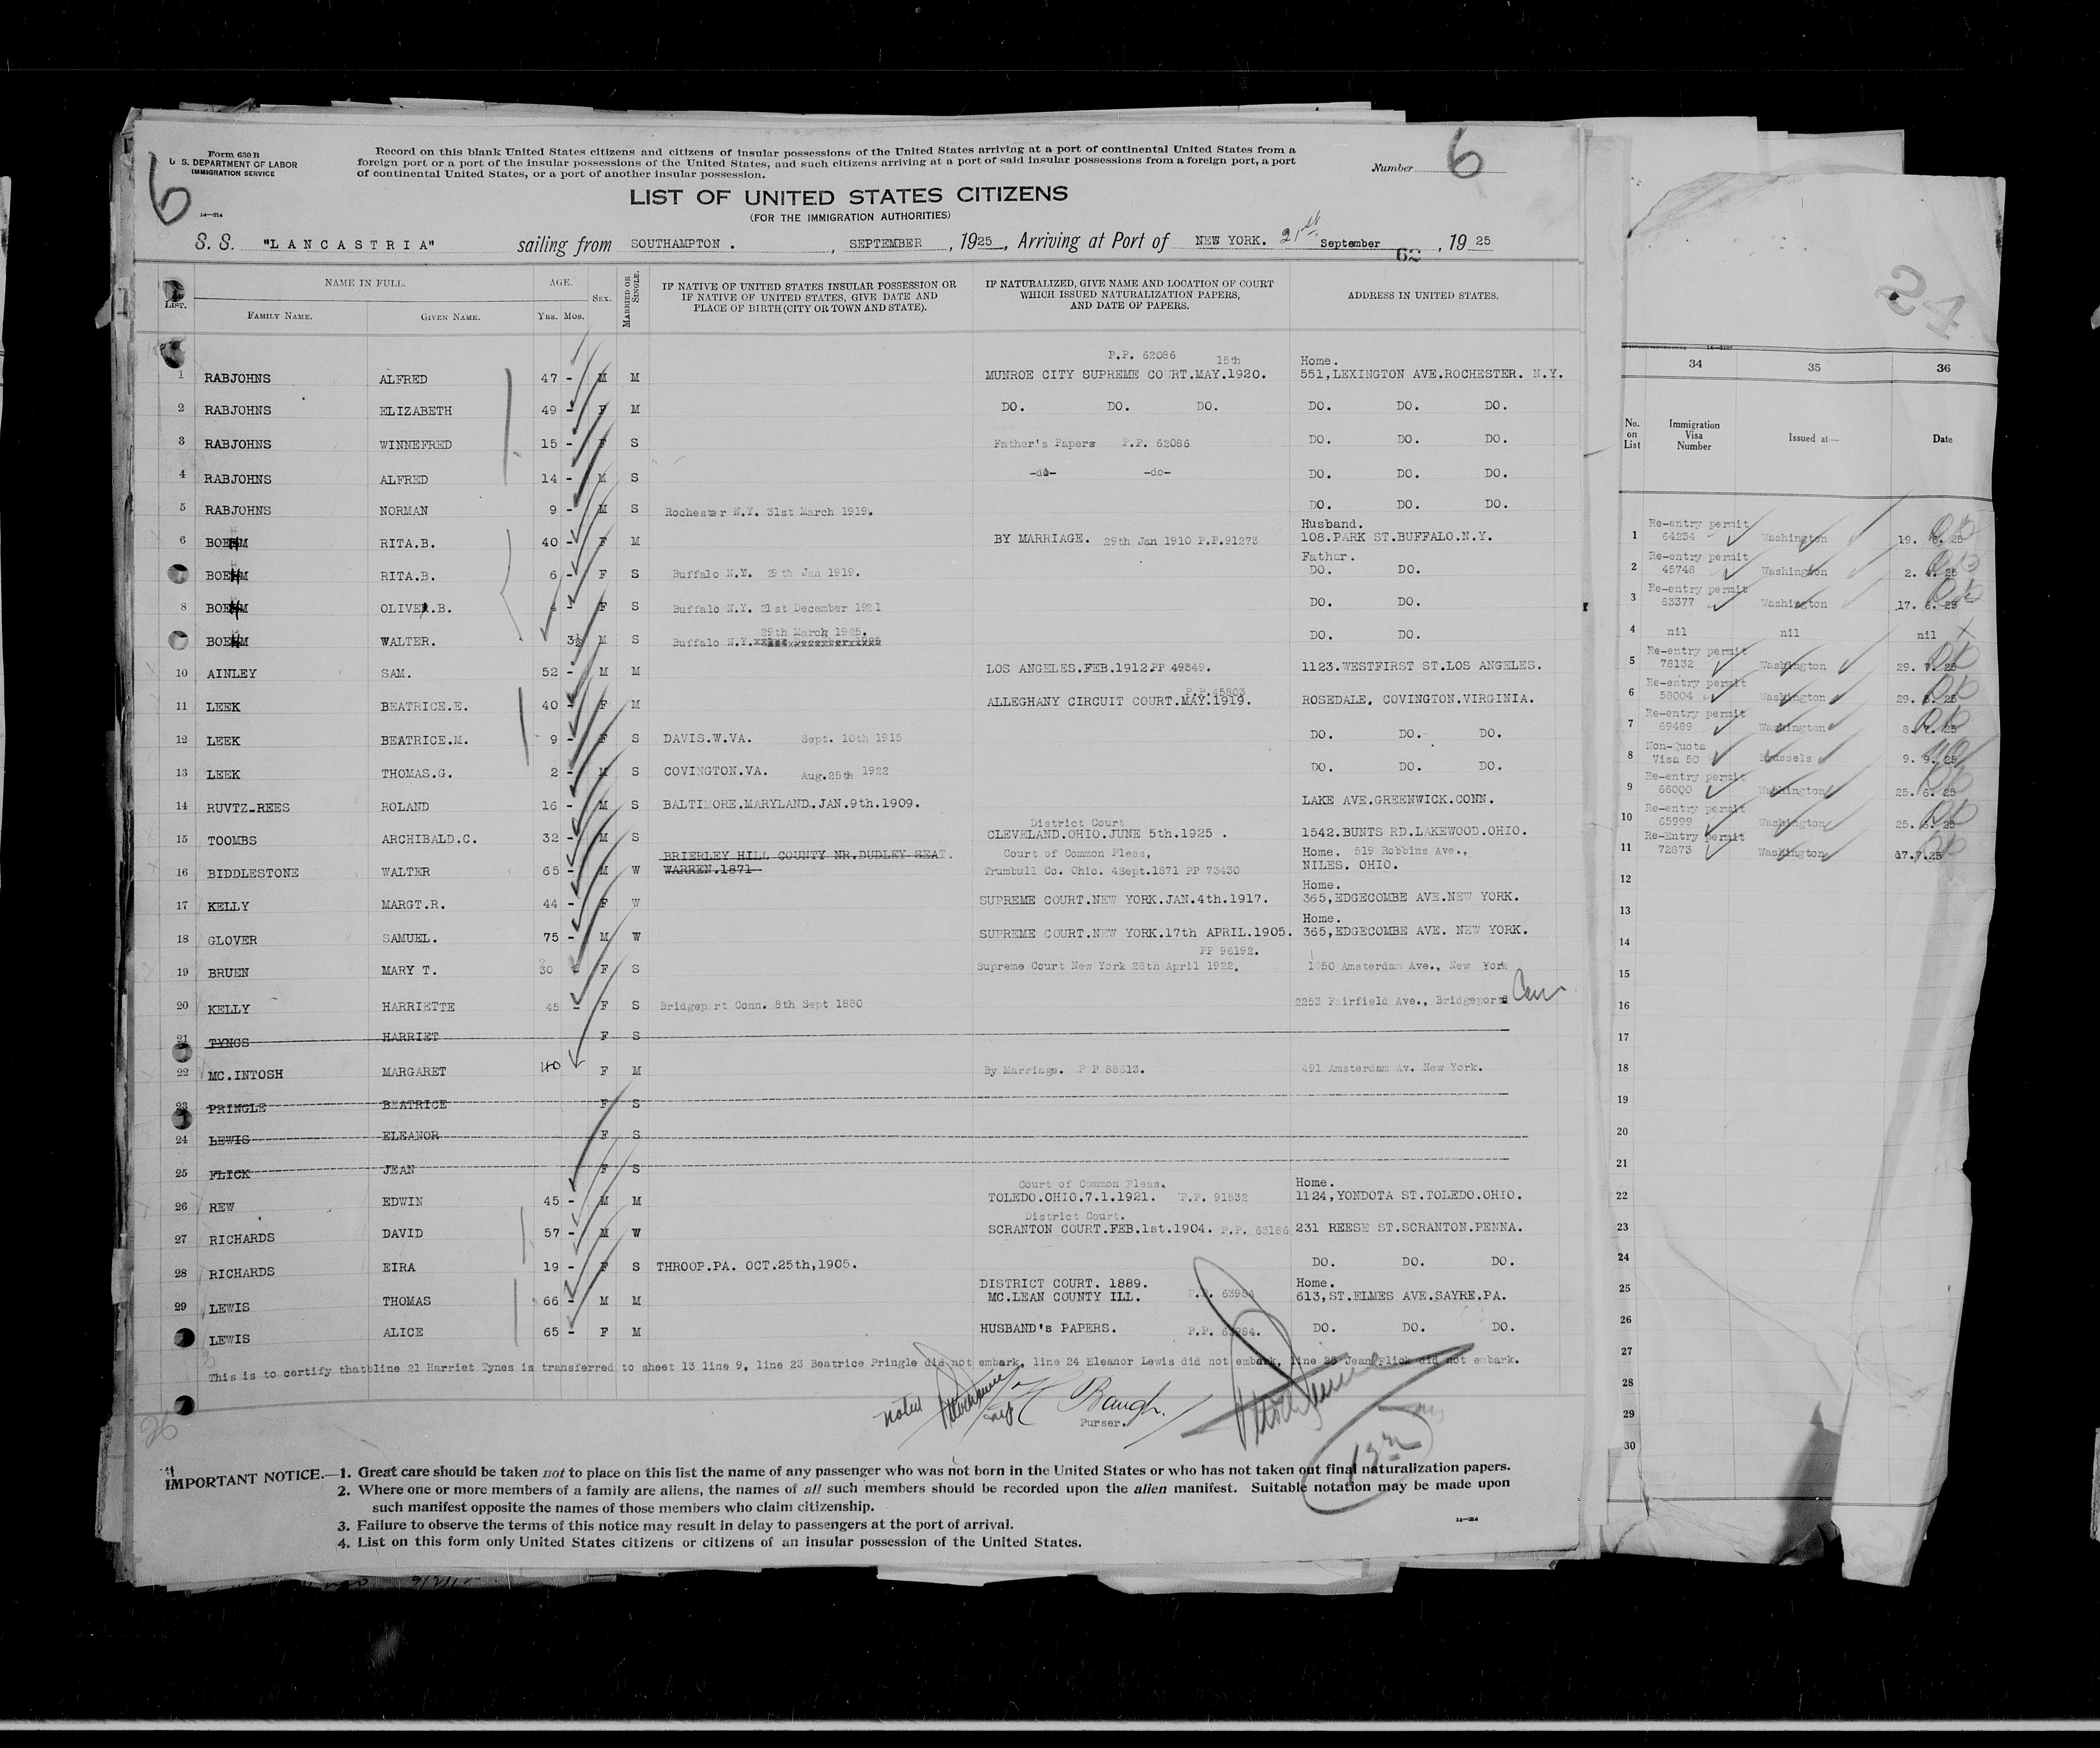 Form 630 B
U. S. DEPARTMENT OF LABOR
IMMIGRATION SERVICE
6
14—214
Record on this blank United States citizens and citizens of insular possessions of the United States arriving at a port of continental United States from a
foreign port or a port of the insular possessions of the United States, and such citizens arriving at a port of said insular possessions from a foreign port, a port
of continental United States, or a port of another insular possession.
Number 6
LIST OF UNITED STATES CITIZENS
(FOR THE IMMIGRATION AUTHORITIES)
S. S. "LANCASTRIA" sailing from SOUTHAMPTON . , SEPTEMBER , 1925 , Arriving at Port of NEW YORK. 21st September , 19 25
62
LIST. NAME IN FULL. AGE. SEX. MARRIED OR SINGLE. IF NATIVE OF UNITED STATES INSULAR POSSESSION OR IF NATIVE OF UNITED STATES, GIVE DATE AND PLACE OF BIRTH (CITY OR TOWN AND STATE). IF NATURALIZED, GIVE NAME AND LOCATION OF COURT WHICH ISSUED NATURALIZATION PAPERS, AND DATE OF PAPERS. ADDRESS IN UNITED STATES.
FAMILY NAME. GIVEN NAME. YRS. MOS.
P.P. 62086 15th Home.
1 RABJOHNS ALFRED 47 - M M MUNROE CITY SUPREME COURT.MAY.1920. 551,LEXINGTON AVE.ROCHESTER. N.Y.
2 RABJOHNS ELIZABETH 49 - F M DO. DO. DO. DO. DO. DO.
3 RABJOHNS WINNEFRED 15 - F S Father's Papers P.P. 62086 DO. DO. DO.
4 RABJOHNS ALFRED 14 - M S -do- -do- DO. DO. DO.
5 RABJOHNS NORMAN 9 - M S Rochester N.Y. 31st March 1919. DO. DO. DO.
Husband.
6 BOEHM RITA.B. 40 - F M BY MARRIAGE. 29th Jan 1910 P.P.91273 108.PARK ST.BUFFALO.N.Y.
Father.
BOEHM RITA.B. 6 - F S Buffalo N.Y. 29th Jan 1919. DO. DO.
8 BOEHM OLIVER.B. 4 - F S Buffalo N.Y. 21st December 1921 DO. DO.
29th March 1925.
BOEHM WALTER. 3½ M S Buffalo N.Y. DO. DO.
10 AINLEY SAM. 52 - M M LOS ANGELES.FEB.1912.PP 49549. 1123.WESTFIRST ST.LOS ANGELES.
P.P.45803
11 LEEK BEATRICE.E. 40 - F M ALLEGHANY CIRCUIT COURT.MAY.1919. ROSEDALE, COVINGTON.VIRGINIA.
12 LEEK BEATRICE.M. 9 - F S DAVIS.W.VA. Sept. 10th 1915 DO. DO. DO.
13 LEEK THOMAS.G. 2 - M S COVINGTON.VA. Aug.25th 1922 DO. DO. DO.
14 RUVTZ-REES ROLAND 16 - M S BALTIMORE.MARYLAND.JAN.9th.1909. LAKE AVE.GREENWICK.CONN.
District Court
15 TOOMBS ARCHIBALD.C. 32 - M S CLEVELAND.OHIO.JUNE 5th.1925 . 1542.BUNTS RD.LAKEWOOD.OHIO.
BRIERLEY HILL COUNTY NR.DUDLEY SEAT. Court of Common Pleas, Home. 519 Robbins Ave.,
16 BIDDLESTONE WALTER 65 - M W WARREN.1871 Trumbull Co. Ohio. 4Sept.1871 PP 73430 NILES. OHIO.
Home.
17 KELLY MARGT.R. 44 - F W SUPREME COURT.NEW YORK.JAN.4th.1917. 365,EDGECOMBE AVE.NEW YORK.
Home.
18 GLOVER SAMUEL. 75 - M W SUPREME COURT.NEW YORK.17th APRIL.1905. 365,EDGECOMBE AVE. NEW YORK.
PP 96192.
19 BRUEN MARY T. 30 - F S Supreme Court New York 28th April 1922. 1050 Amsterdam Ave., New York
20 KELLY HARRIETTE 45 - F S Bridgeport Conn. 8th Sept 1880 2253 Fairfield Ave., Bridgeport Conn
21 TYNGS HARRIET F S
22 MC.INTOSH MARGARET 40 F M By Marriage. P P 88613. 491 Amsterdam Av. New York.
23 PRINGLE BEATRICE F S
24 LEWIS ELEANOR F S
25 FLICK JEAN F S
Court of Common Pleas. Home.
26 REW EDWIN 45 - M M TOLEDO.OHIO.7.1.1921. P.P. 91532 1124,YONDOTA ST.TOLEDO.OHIO.
District Court.
27 RICHARDS DAVID 57 - M W SCRANTON COURT.FEB.1st.1904. P.P. 63186 231 REESE ST.SCRANTON.PENNA.
28 RICHARDS EIRA 19 - F S THROOP.PA. OCT.25th,1905. DO. DO. DO.
DISTRICT COURT. 1889. Home.
29 LEWIS THOMAS 66 - M M MC.LEAN COUNTY ILL. P.P. 63984 613,ST.ELMES AVE.SAYRE.PA.
LEWIS ALICE 65 - F M HUSBAND's PAPERS. P.P. 63984. DO. DO. DO.
This is to certify that line 21 Harriet Tynes is transferred to sheet 13 line 9, line 23 Beatrice Pringle did not embark, line 24 Eleanor Lewis did not embark, line 25 Jean Flick did not embark.
noted Baugh.
Purser.
26
IMPORTANT NOTICE.—1. Great care should be taken not to place on this list the name of any passenger who was not born in the United States or who has not taken out final naturalization papers.
2. Where one or more members of a family are aliens, the names of all such members should be recorded upon the alien manifest. Suitable notation may be made upon
such manifest opposite the names of those members who claim citizenship.
3. Failure to observe the terms of this notice may result in delay to passengers at the port of arrival.
4. List on this form only United States citizens or citizens of an insular possession of the United States.
14—214
34 35 36
No. on List Immigration Visa Number Issued at— Date
1 Re-entry permit 64234 Washington 19. 6. 25
2 Re-entry permit 45748 Washington 2. 4. 25
3 Re-entry permit 63377 Washington 17. 6. 25
4 nil nil nil
5 Re-entry permit 78132 Washington 29. 7. 25
6 Re-entry permit 58004 Washington 29. 5. 25
7 Re-entry permit 69489 Washington 8. 7. 25
8 Non-Quota Visa 50 Brussels 9. 9. 25
9 Re-entry permit 66000 Washington 25. 6. 25
10 Re-entry permit 65999 Washington 25. 6. 25
11 Re-Entry permit 72873 Washington 17.7.25
12
13
14
15
16
17
18
19
20
21
22
23
24
25
26
27
28
29
30